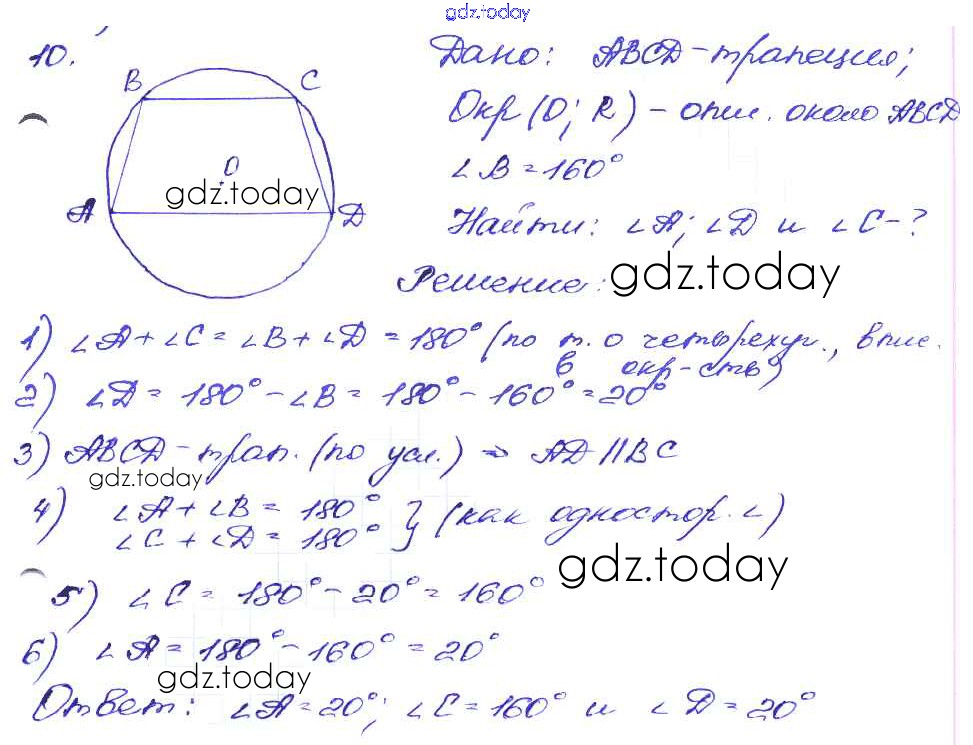 gdz.today
10.
Дано: ABCD - трапеция;
Окр (O; R) - опис. около ABCD
∠B = 160°
Найти: ∠A; ∠D и ∠C - ?
B C
O
gdz.today
A D
Решение:
gdz.today
1) ∠A + ∠C = ∠B + ∠D = 180° (по т. о четырехуг., впис.
в окр-сть)
2) ∠D = 180° - ∠B = 180° - 160° = 20°
3) ABCD - трап. (по усл.) ⇒ AD || BC
gdz.today
4) ∠A + ∠B = 180°
∠C + ∠D = 180° } (как одностор. ∠)
gdz.today
5) ∠C = 180° - 20° = 160°
6) ∠A = 180° - 160° = 20°
gdz.today
Ответ: ∠A = 20°; ∠C = 160° и ∠D = 20°